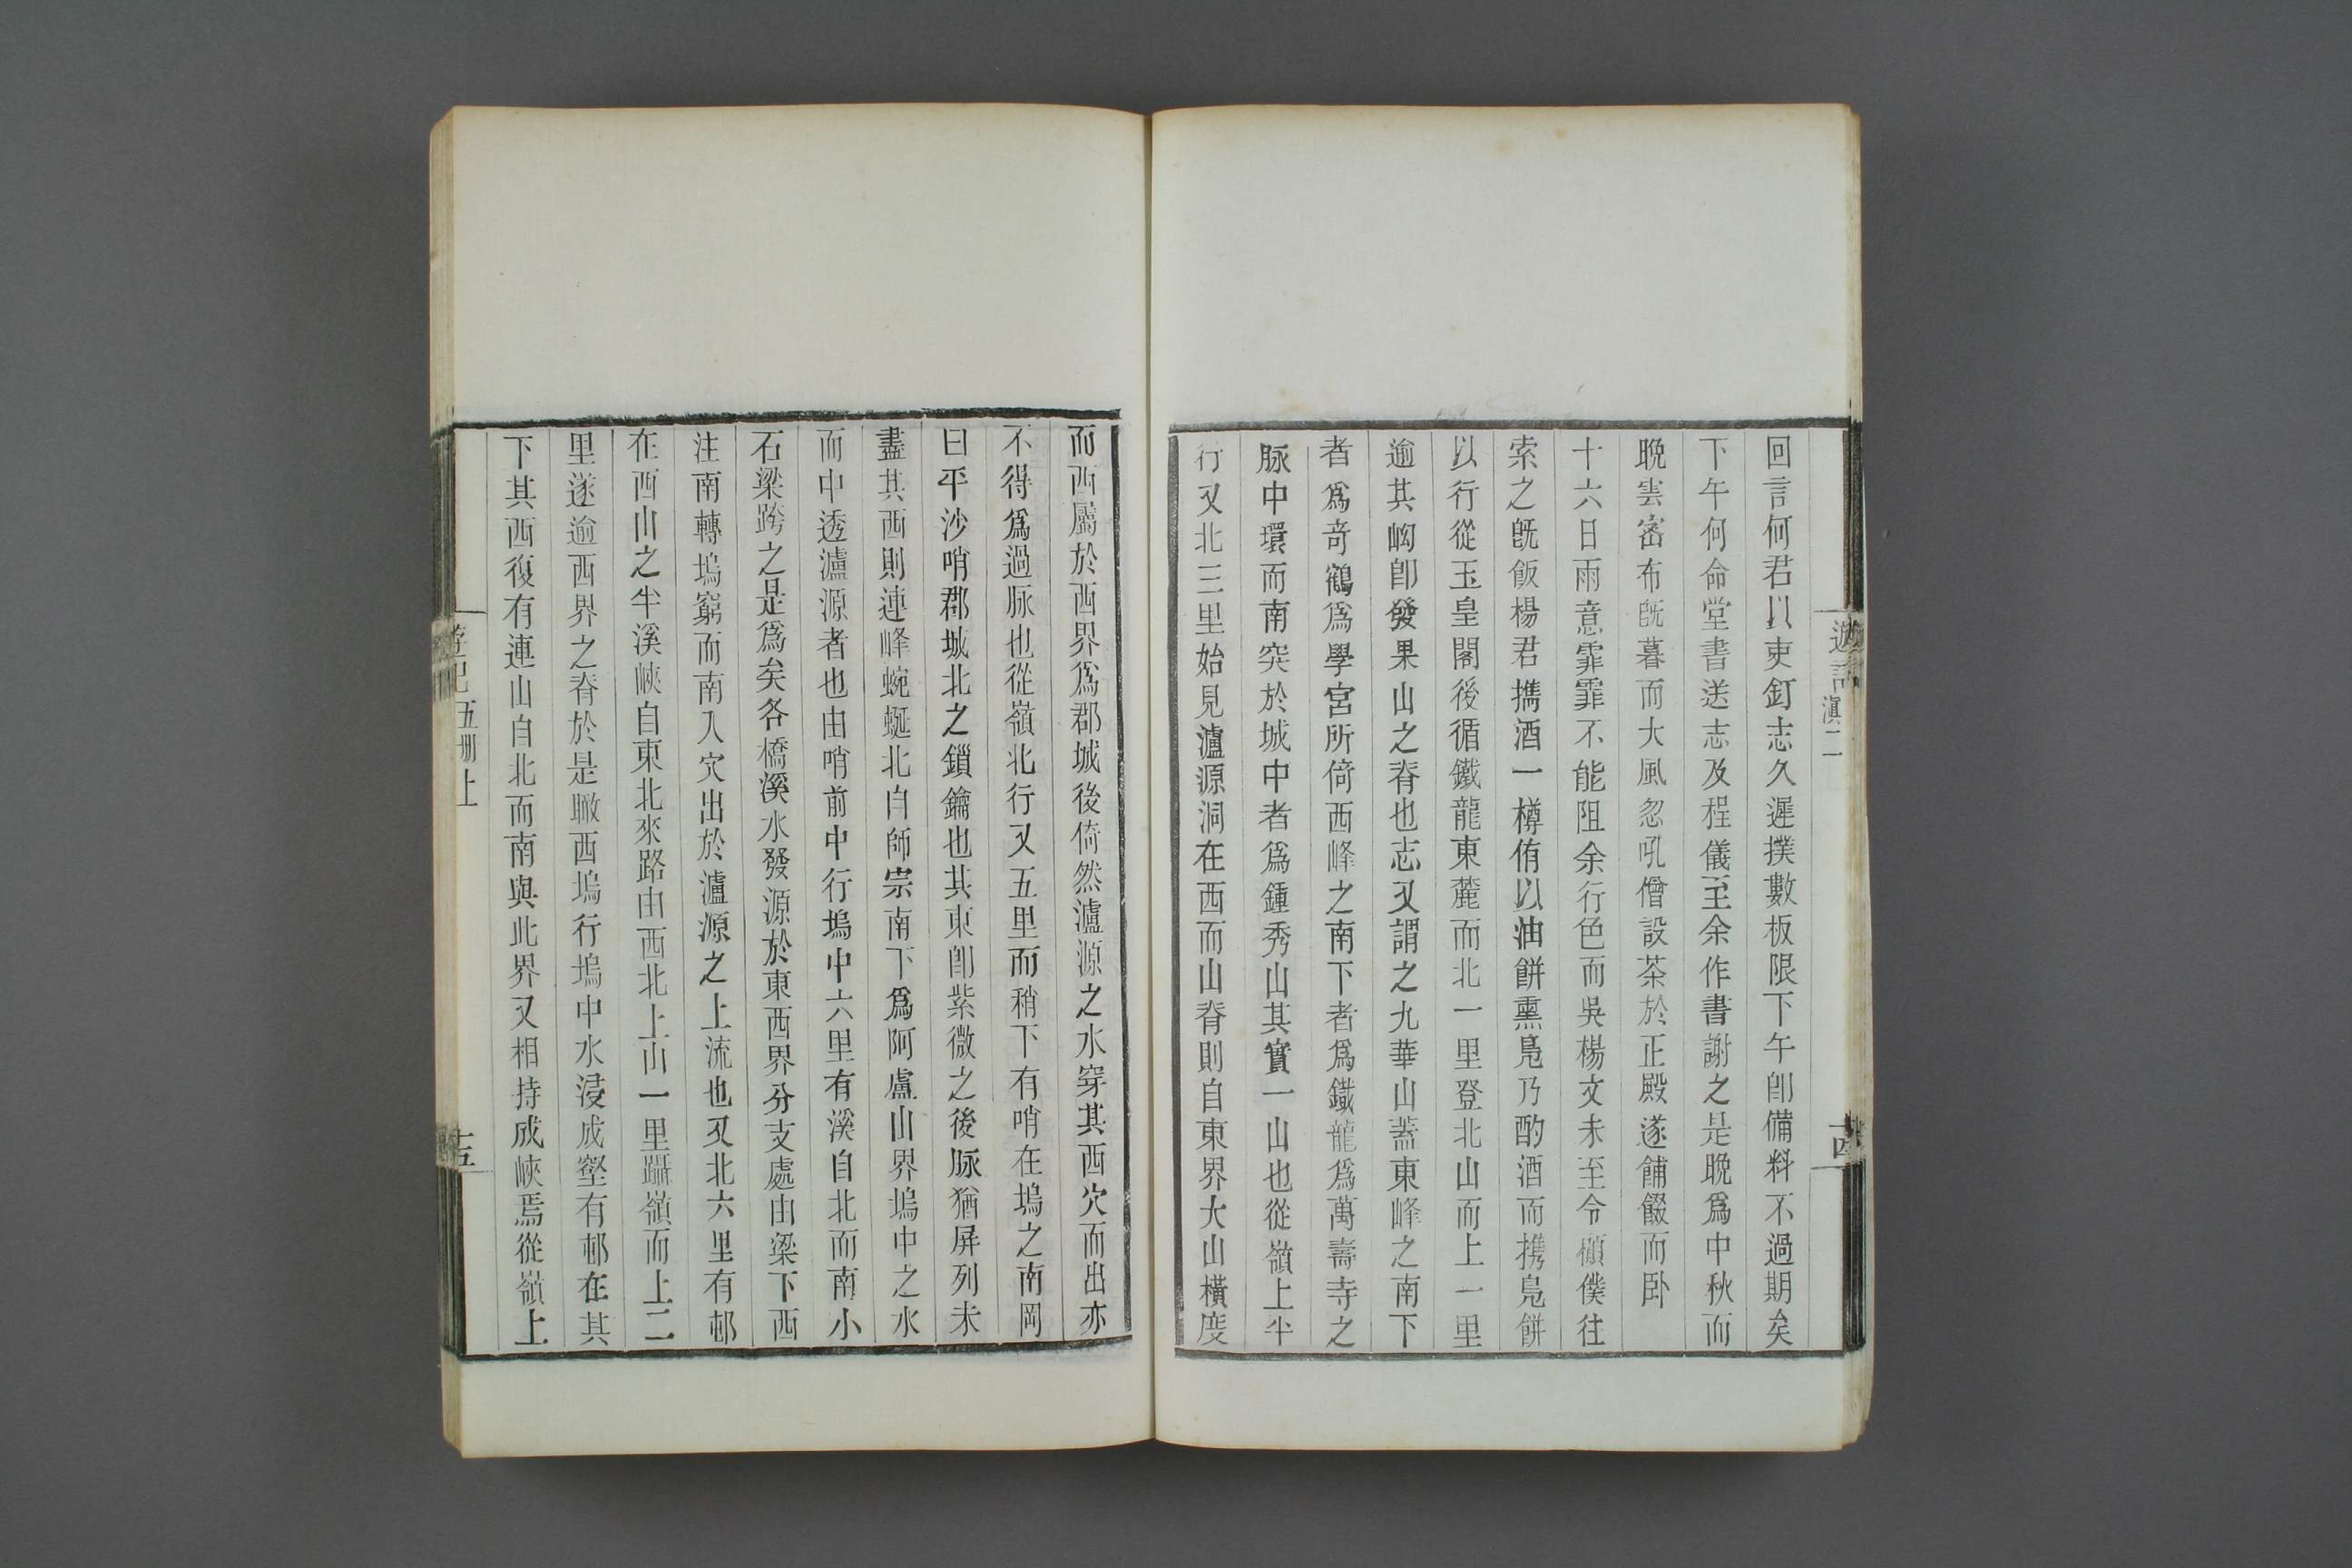 遊記滇二
十四
回言何君以吏釘志久遲撲數板限下午卽備料不過期矣
下午何命堂書送志及程儀至余作書謝之是晚爲中秋而
晚雲密布旣暮而大風忽吼僧設茶於正殿遂餔餟而卧
十六日雨意霏霏不能阻余行色而吳楊文未至令顧僕往
索之旣飯楊君攜酒一樽侑以油餅熏鳧乃酌酒而携鳧餅
以行從玉皇閣後循鐵龍東麓而北一里登北山而上一里
逾其峒卽發果山之脊也志又謂之九華山蓋東峰之南下
者爲奇鶴爲學宮所倚西峰之南下者爲鐵龍爲萬壽寺之
脉中環而南突於城中者爲鍾秀山其實一山也從嶺上半
行又北三里始見瀘源洞在西而山脊則自東界大山橫度
而西屬於西界爲郡城後倚然瀘源之水穿其西穴而出亦
不得爲過脉也從嶺北行又五里而稍下有哨在塢之南岡
曰平沙哨郡城北之鎖鑰也其東卽紫微之後脉猶屏列未
盡其西則連峰蜿蜒北自師宗南下爲阿盧山界塢中之水
而中透瀘源者也由哨前中行塢中六里有溪自北而南小
石梁跨之是爲矣各橋溪水發源於東西界分支處由梁下西
注南轉塢窮而南入穴出於瀘源之上流也又北六里有邨
在西山之半溪峽自東北來路由西北上山一里躡嶺而上二
里遂逾西界之脊於是瞰西塢行塢中水浸成壑有邨在其
下其西復有連山自北而南與此界又相持成峽焉從嶺上
遊記五册上
十五